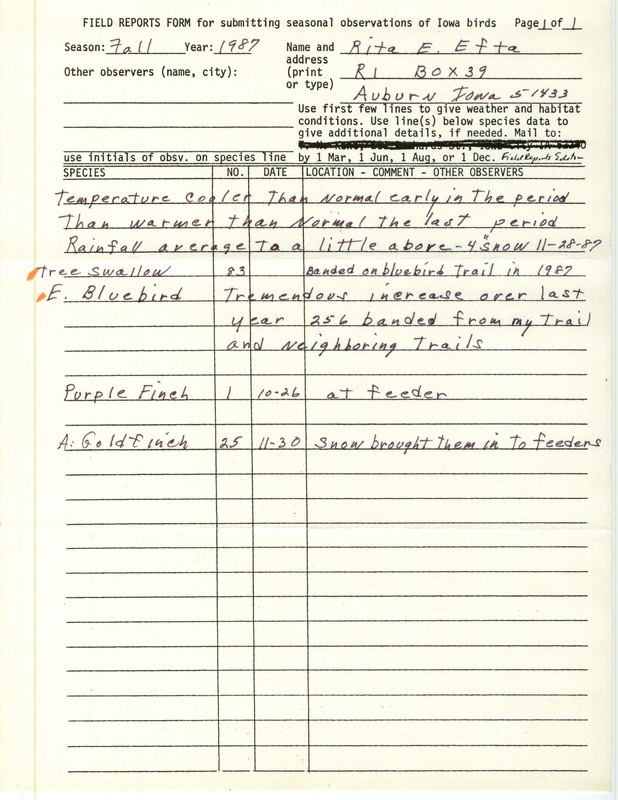 FIELD REPORTS FORM for submitting seasonal observations of Iowa birds Page 1 of 1
Season: Fall Year: 1987 Name and address (print or type) Rita E. Efta
R1 BOX 39
Auburn Iowa 51433
Other observers (name, city):
Use first few lines to give weather and habitat
conditions. Use line(s) below species data to
give additional details, if needed. Mail to:
use initials of obsv. on species line by 1 Mar, 1 Jun, 1 Aug, or 1 Dec. Field Reports Editor
SPECIES NO. DATE LOCATION - COMMENT - OTHER OBSERVERS
Temperature cooler Than Normal early in The period
Than warmer than Normal the last period
Rainfall average to a little above - 4" snow 11-28-87
Tree Swallow 83 Banded on bluebird Trail in 1987
E. Bluebird Tremendous increase over last
year 256 banded from my Trail
and Neighboring Trails
Purple Finch 1 10-26 at feeder
A. Goldfinch 25 11-30 Snow brought them in To feeders